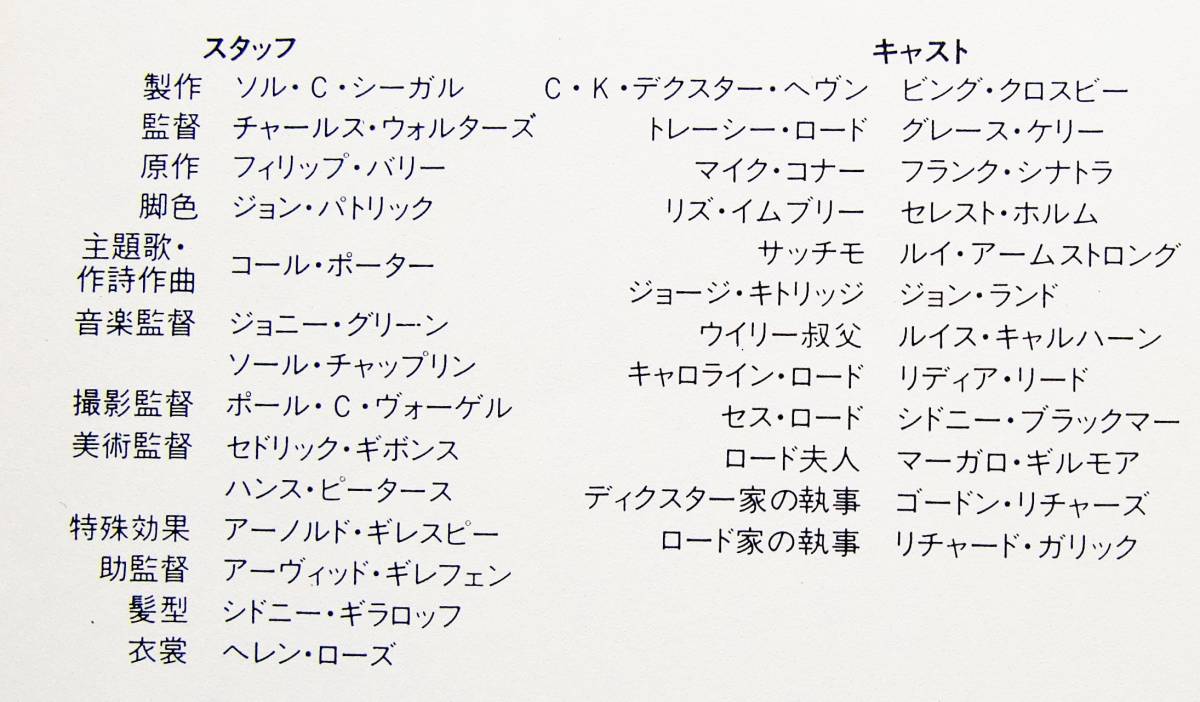 スタッフ
製作 ソル・C・シーガル
監督 チャールス・ウォルターズ
原作 フィリップ・バリー
脚色 ジョン・パトリック
主題歌・
作詩作曲 コール・ポーター
音楽監督 ジョニー・グリーン
ソール・チャップリン
撮影監督 ポール・C・ヴォーゲル
美術監督 セドリック・ギボンス
ハンス・ピータース
特殊効果 アーノルド・ギレスピー
助監督 アーヴィッド・ギレフェン
髪型 シドニー・ギラロッフ
衣裳 ヘレン・ローズ
キャスト
C・K・デクスター・ヘヴン ビング・クロスビー
トレーシー・ロード グレース・ケリー
マイク・コナー フランク・シナトラ
リズ・イムブリー セレスト・ホルム
サッチモ ルイ・アームストロング
ジョージ・キトリッジ ジョン・ランド
ウイリー叔父 ルイス・キャルハーン
キャロライン・ロード リディア・リード
セス・ロード シドニー・ブラックマー
ロード夫人 マーガロ・ギルモア
ディクスター家の執事 ゴードン・リチャーズ
ロード家の執事 リチャード・ガリック